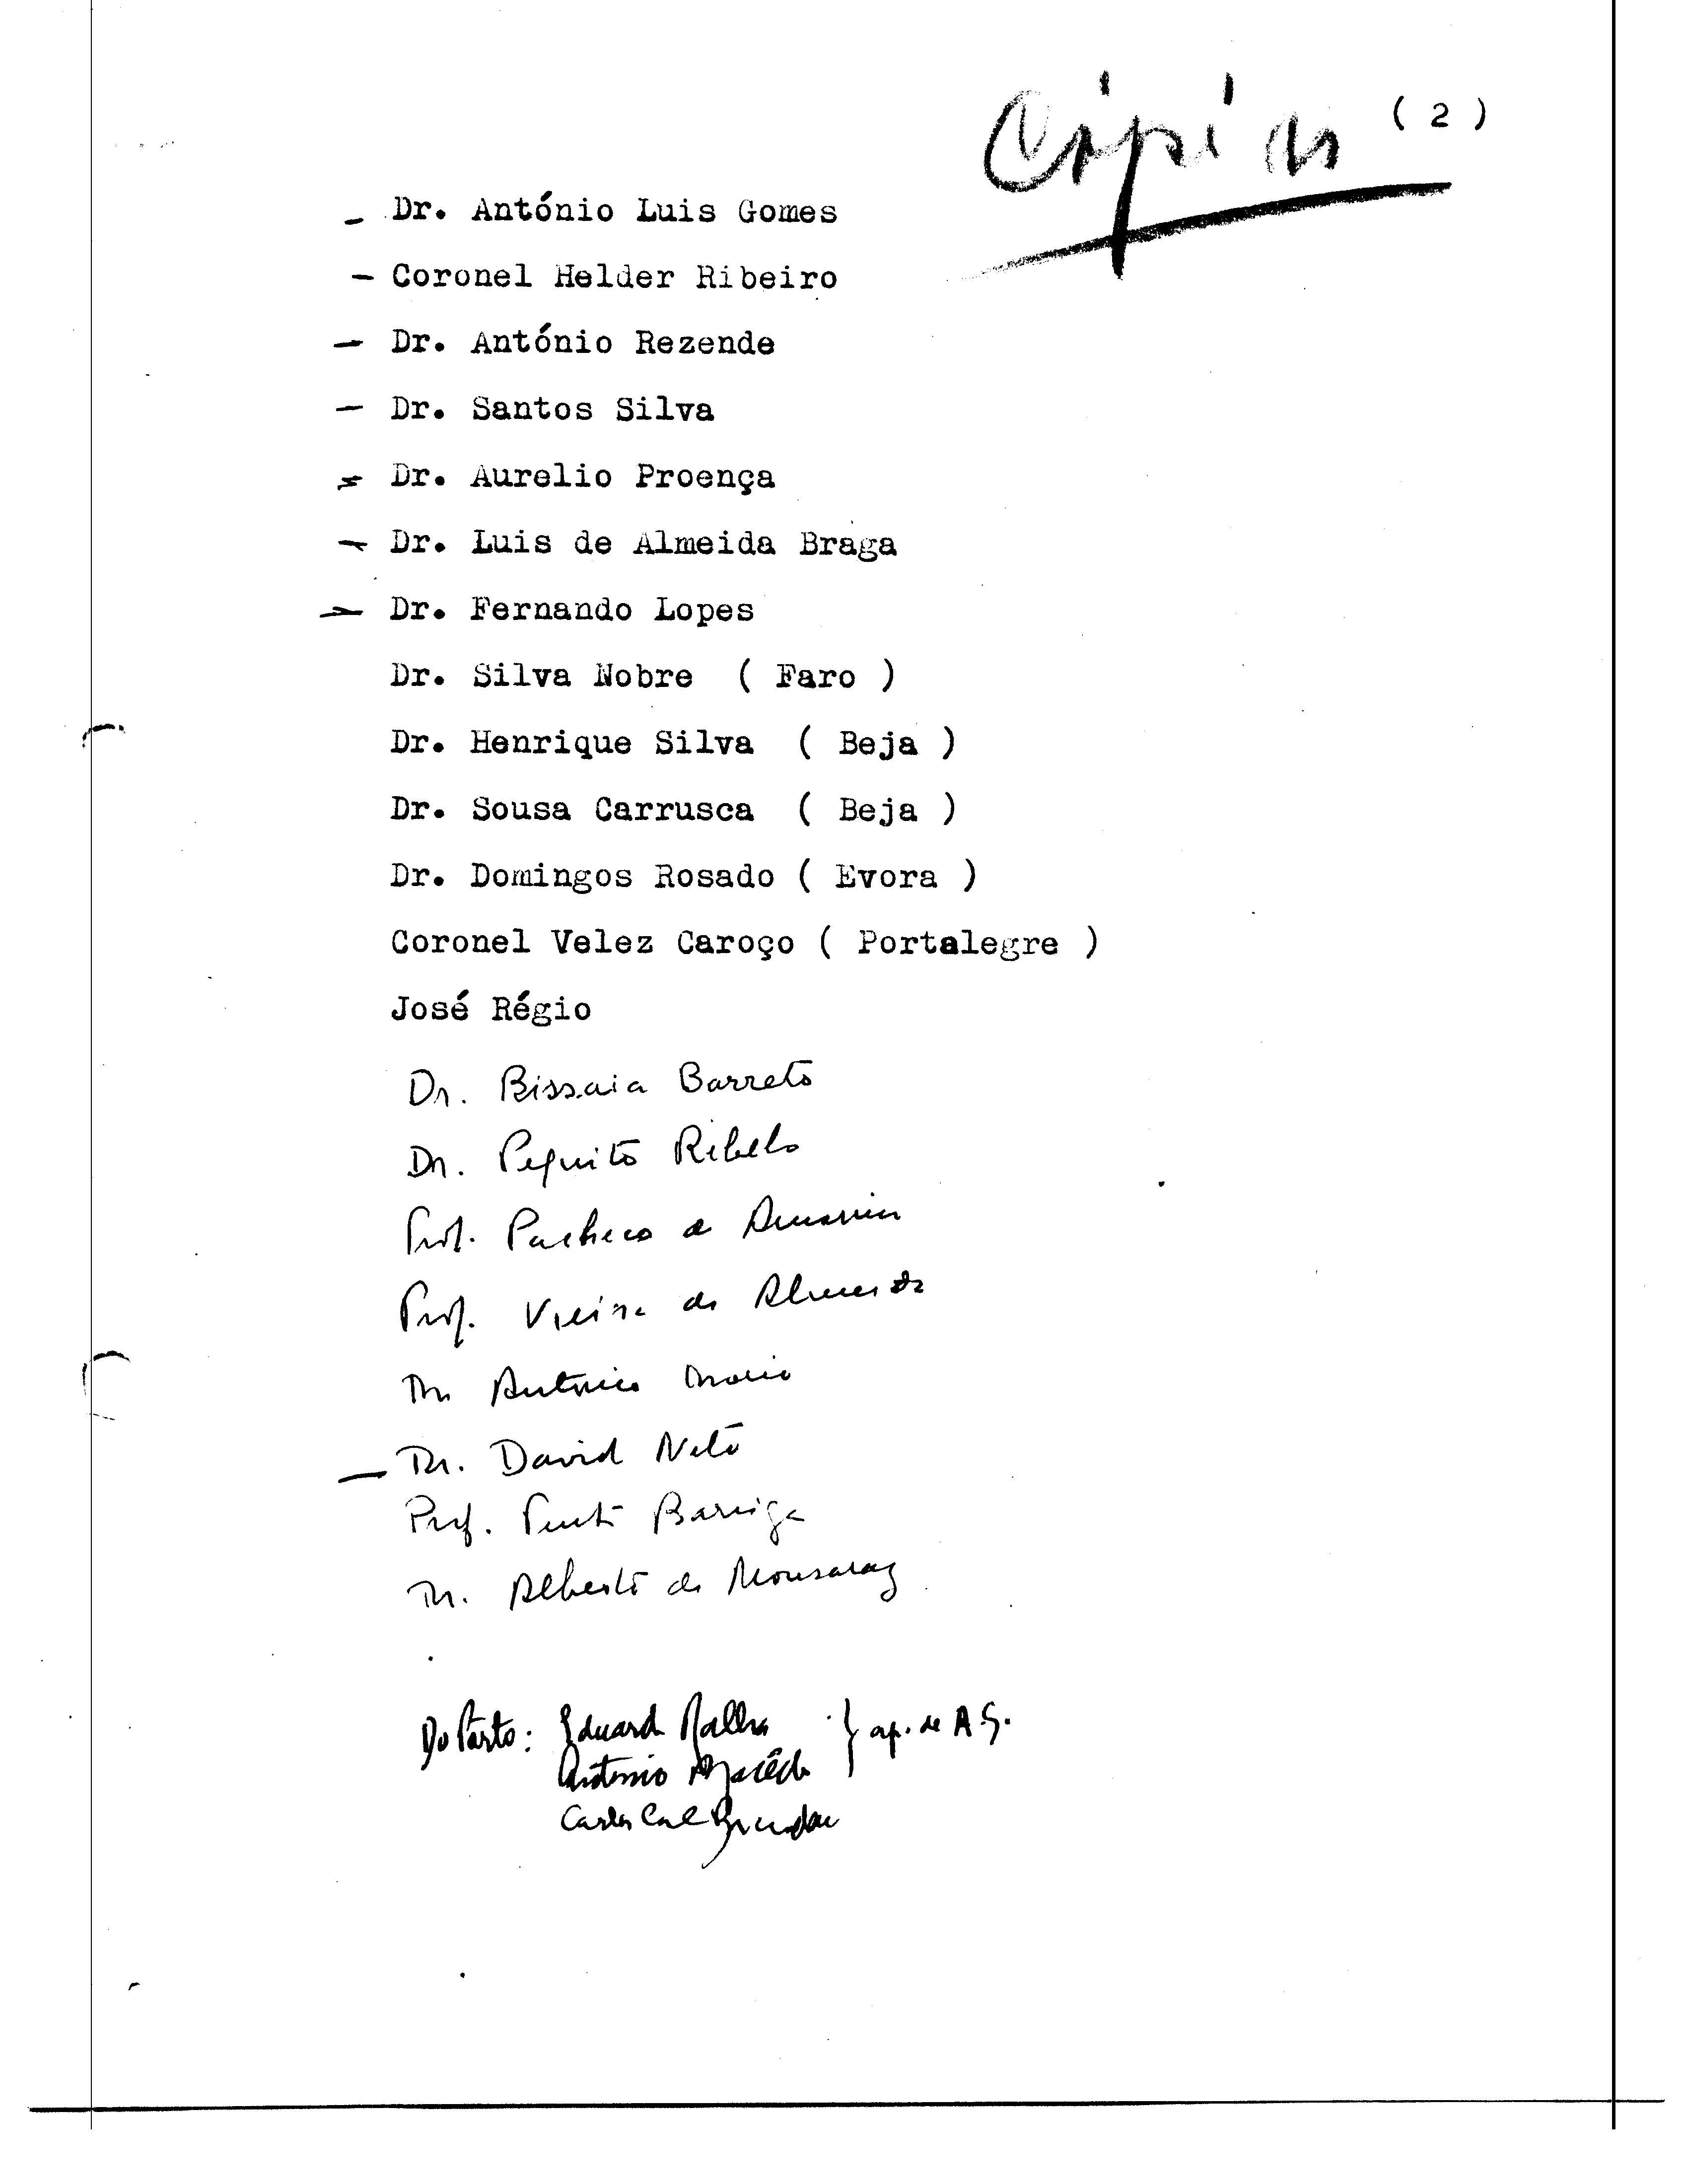 Cópia
( 2 )
- Dr. António Luis Gomes
- Coronel Helder Ribeiro
- Dr. António Rezende
- Dr. Santos Silva
- Dr. Aurelio Proença
- Dr. Luis de Almeida Braga
- Dr. Fernando Lopes
Dr. Silva Nobre ( Faro )
Dr. Henrique Silva ( Beja )
Dr. Sousa Carrusca ( Beja )
Dr. Domingos Rosado ( Evora )
Coronel Velez Caroço ( Portalegre )
José Régio
Dr. Bissaia Barreto
Dr. Pequito Rebelo
Prof. Pacheco de Amorim
Prof. Vieira de Almeida
Dr. António
- Dr. David Neto
Prof. Pinto Barriga
Dr. Alberto de Monsaraz
Do Porto: Eduardo Ralha } ap. de A.S.
António
Carlos Cal Brandão